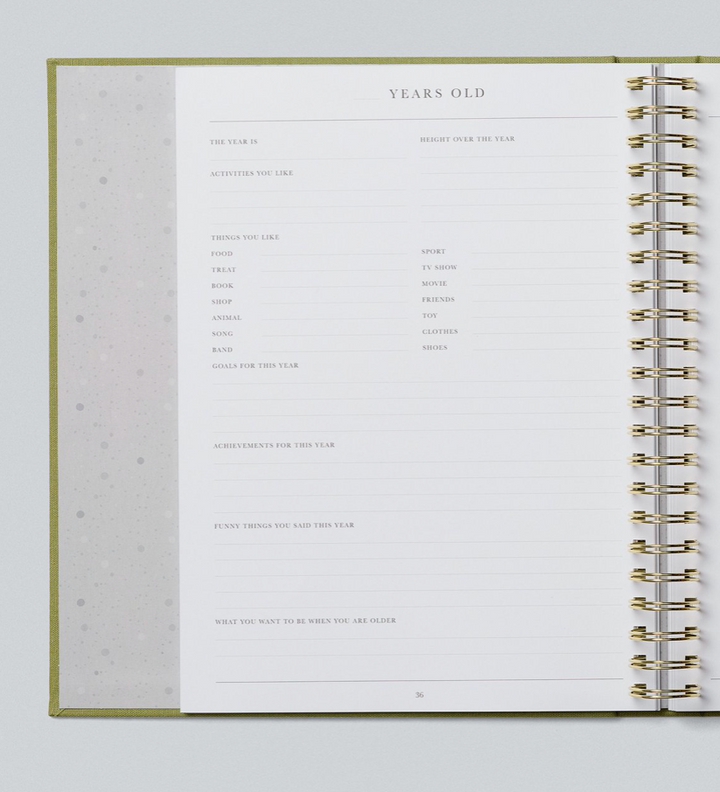 YEARS OLD
THE YEAR IS
HEIGHT OVER THE YEAR
ACTIVITIES YOU LIKE
THINGS YOU LIKE
FOOD
TREAT
BOOK
SHOP
ANIMAL
SONG
BAND
SPORT
TV SHOW
MOVIE
FRIENDS
TOY
CLOTHES
SHOES
GOALS FOR THIS YEAR
ACHIEVEMENTS FOR THIS YEAR
FUNNY THINGS YOU SAID THIS YEAR
WHAT YOU WANT TO BE WHEN YOU ARE OLDER
36